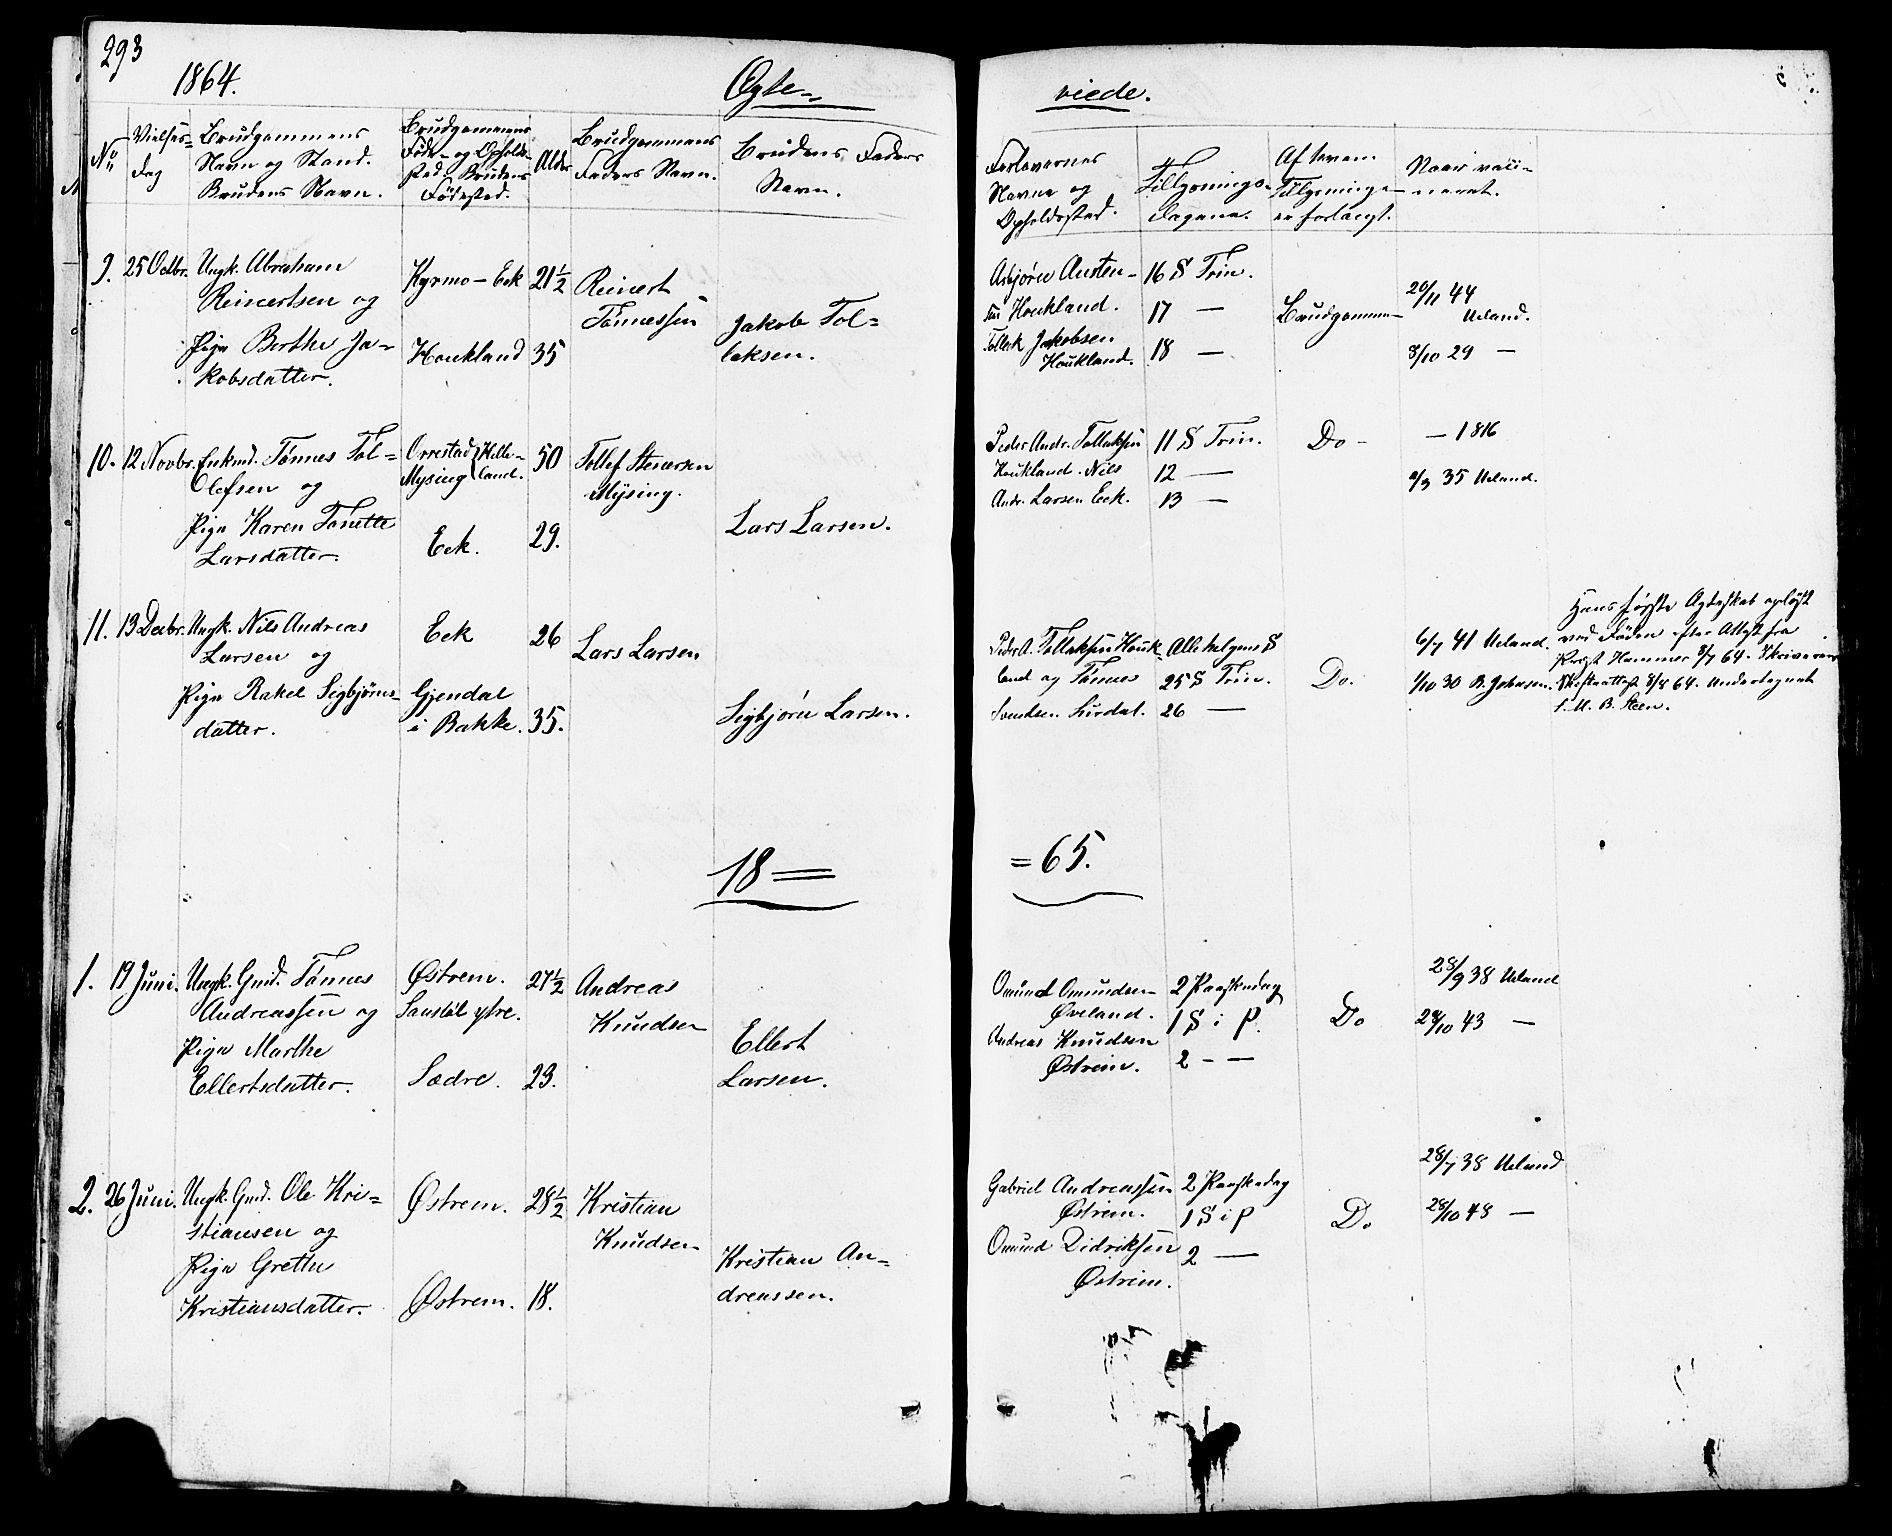 293
1864.
Ægte=
viede.
No
Vielses=
dag
Brudgommens
Navn og Stand.
Brudens Navn.
Brudgommens
Føde- og Opholds-
sted. Brudens
Fødested.
Alder
Brudgommens
Faders Navn.
Brudens Faders
Navn.
Forlovernes
Navne og
Opholdssted.
Tillysnings-
dagene.
Af hvem
Tillysningen
er forlangt.
Naar vacci-
neret.
9. 25 Octbr. Ungk. Abraham
Reinertsen og
Pige Berthe Ja-
kobsdatter.
Kyrmo - Eek
Houkland
21½
35
Reinert
Tønnessen
Jakob Tol=
laksen.
Asbjørn Austen-
sen Houkland.
Tollak Jakobsen
Houkland.
16 S Trin.
17 —
18 —
Brudgommen
20/11 44
Ueland.
8/10 29 —
10. 12 Novbr. Enkmd. Tønnes Tol=
Olefsen og
Pige Karen Tonette
Larsdatter.
Orrestad Helle-
Mysing land.
Eek.
50
29.
Tollef Stenersen
Mysing.
Lars Larsen.
Peder Andr. Tollaksen
Houkland. Nils
Andr. Larsen Eek.
11 S Trin.
12 —
13 —
Do -
— 1816
35 Ueland.
11. 13 Decbr. Ungk. Nils Andreas
Larsen og
Pige Rakel Sigbjørns-
datter.
Eek
Gjendal
i Bakke.
26
35.
Lars Larsen
Sigbjørn Larsen.
Peder A. Tollaksen Houk-
land og Tønnes
Svendsen Lurdal.
Alle helgens S
25 S Trin.
26 —
Do.
6/7 41 Ueland.
1/10 30 B. Johnsen.
Hans første Ægteskab opløst
ved Døden efter Attest fra
Prgst Hammer 8/7 64. Skriverens
Skifteattest 8/8 64. Undertegnet
B. Steen.
18=
=65.
1. 19 Juni. Ungk. Gmd. Tønnes
Andreassen og
Pige Marthe
Ellertsdatter.
Østrem.
Sanstøl ytre.
Sædre.
27½
23.
Andreas
Knudsen
Ellert
Larsen.
Omund Omundsen
Øveland.
Andreas Knudsen
Østrem.
2 Paaskedag
1 S i P.
2 - —
Do
28/9 38 Ueland
29/10 43 —
2. 26 Juni. Ungk. Gmd. Ole Kri=
stiansen og
Pige Grethe
Kristiansdatter.
Østrem.
Østrem.
28½
18.
Kristian
Knudsen
Kristian An=
dreassen.
Gabriel Andreassen
Østrem.
Omund Didriksen
Østrem.
2 Paaskedag
1 S i P
2 —
Do
28/7 38 Ueland
28/10 48 —